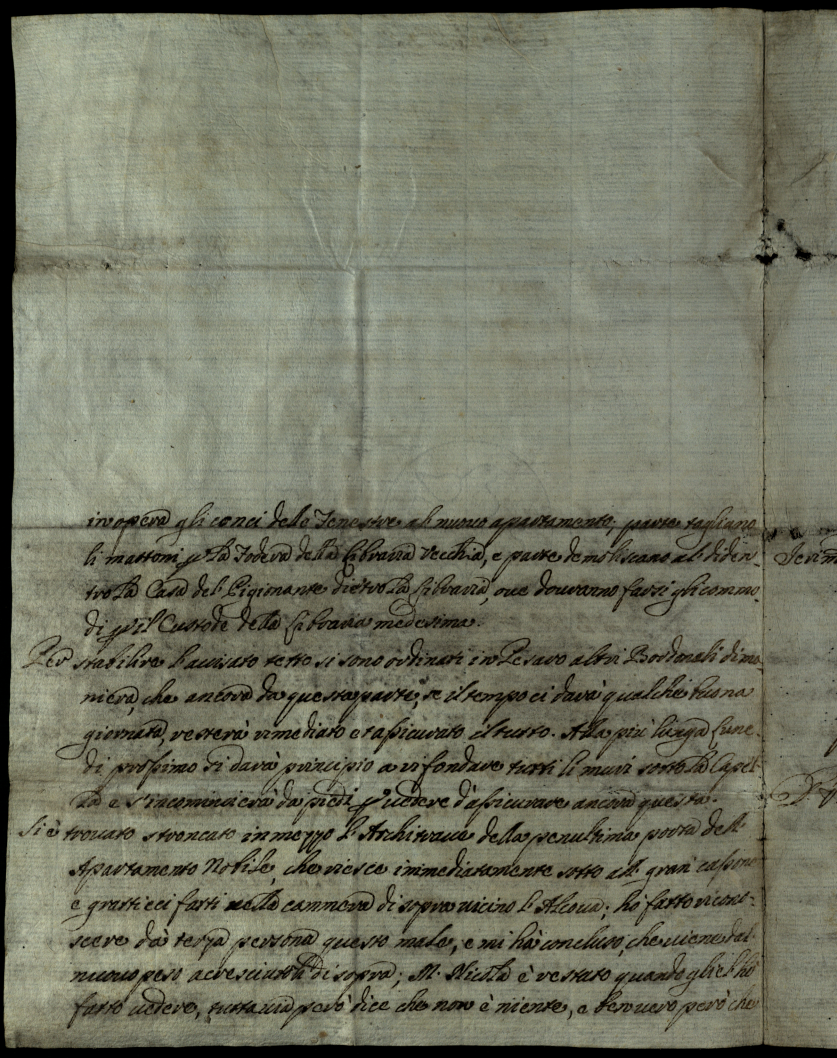 in opera gli conci delle Fenestre al nuovo apartamento; parte tagliano
li mattoni p la Fodera della Libraria Vecchia, e parte demoliscano al diden-
tro la Casa del dietro la Libraria, ove douranno farsi gli commo-
di p il Custode della Libraria medesima.
Per stabilire l'auuisato tetto si sono ordinati in Pesaro altri Bordonali di ma-
niera, che ancora da questa parte, se il tempo ci darà qualche buona
giornata, resterà rimediato et assicurato il tutto. Alla più lunga, Lune-
di prossimo si darà principio a rifondare tutti li muri sotto la Capel-
la e s'incomincierà da piedi p uedere d'assicurare ancora questa.
Si è trouato stroncato in mezzo l'Architraue della penultima porta dell'
Apartamento Nobile, che riesce immediatamente sotto all gran cassone
e fatti nella cammera di sopra uicino l'Alcoua; hò fatto ricono-
scere dà terza persona questo male, e mi hà concluso, che uiene dal
nuouo peso acresciutoli di sopra; M. Nicola è restato quando gliel'hò
fatto uedere, tutta uia però dice che non è niente, e ben uero però che
Ieri